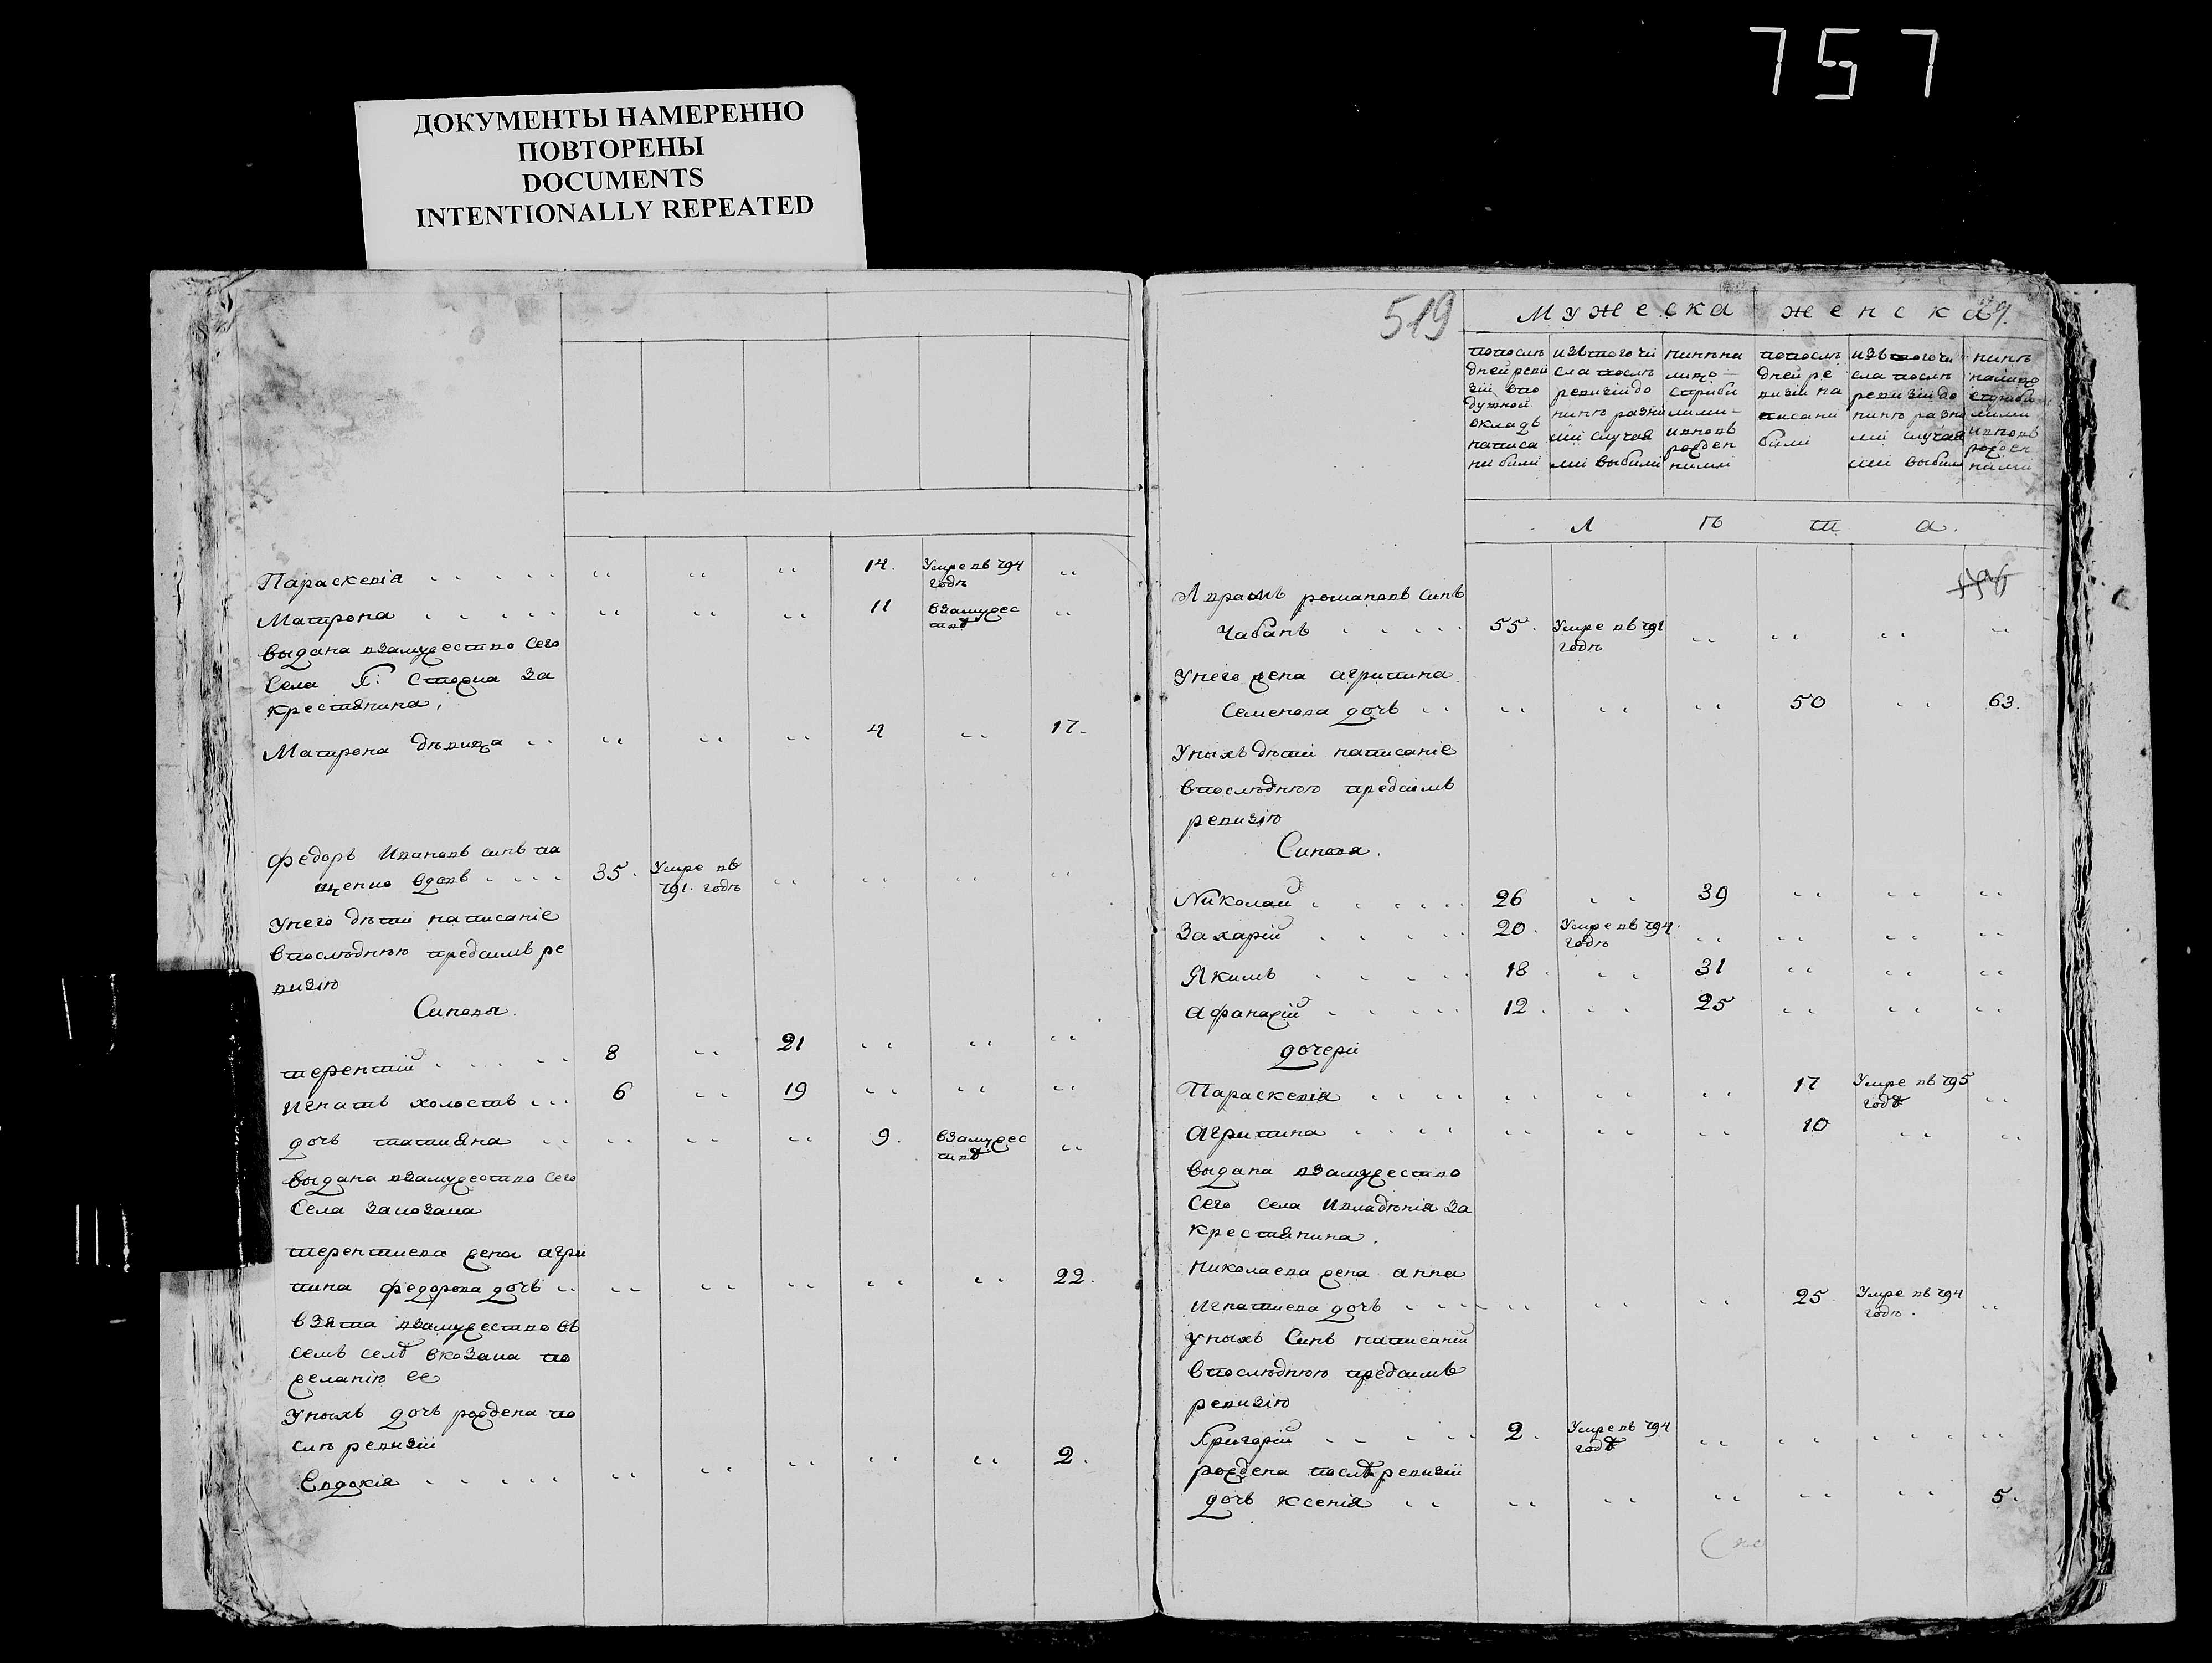 757
ДОКУМЕНТЫ НАМЕРЕННО
ПОВТОРЕНЫ
DOCUMENTS
INTENTIONALLY REPEATED
Параскевія 14. Умре въ 794 годѣ
Матрона 11 взамужес твѣ
выдана взамужество сего
села Г: Сторжа за
крестянина,
Матрона дѣвица 4 17.
Федоръ Ивановъ синъ
вдовъ 35. Умре въ 791. годѣ
Унего дѣти написаніе
впослюднюю предсимъ ре
визію
Синовя.
терентій 8 21
игнатъ холостъ 6 19
дочь татияна 9. взамужес твѣ
выдана взамужество сего
села закозака
терентиева жена агри
пина федорова дочь 22.
взята взамужество въ
семъ селѣ вкозака по
желанію ее
Унихъ дочь рождена по
слѣ ревизіи
Евдокія 2.
519
Мужеска женска
попослѣ дней реви зіи впо душной окладъ написа ни били
изътого чи сла послѣ ревизіи до нинѣ разни ми случая ми выбили
нинѣ на лицо с приби лими и вновь рожден ними
попослѣ дней ре визіи на писани били
изътого чи сла послѣ ревизіи до нинѣ разни ми случая ми выбили
нинѣ налицо сприби лими и вновь рожден ними
Л ѣ т а.
Авраамъ романовъ синъ
Чабанъ 55. Умре въ 791 годѣ
Унего жена агрипина
Семенова дочь 50 63.
Унихъ дѣти написаніе
впослюднюю предсимъ
ревизію
Синовя.
Николай 26 39
Захарій 20. Умре въ 794 годѣ
Якимъ 18. 31
Афанасій 12. 25
дочери
Параскевія 17 Умре въ 795 годѣ
Агрипина 10
выдана взамужество
сего села ивладѣнія за
крестянина.
Николаева жена анна
Игнатиева дочь 25 Умре въ 794 годѣ.
Унихъ синъ написаній
впослюднюю предсимъ
ревизію
Григорій 2. Умре въ 794 годѣ
рождена послѣ ревизіи
дочь ксенія 5.